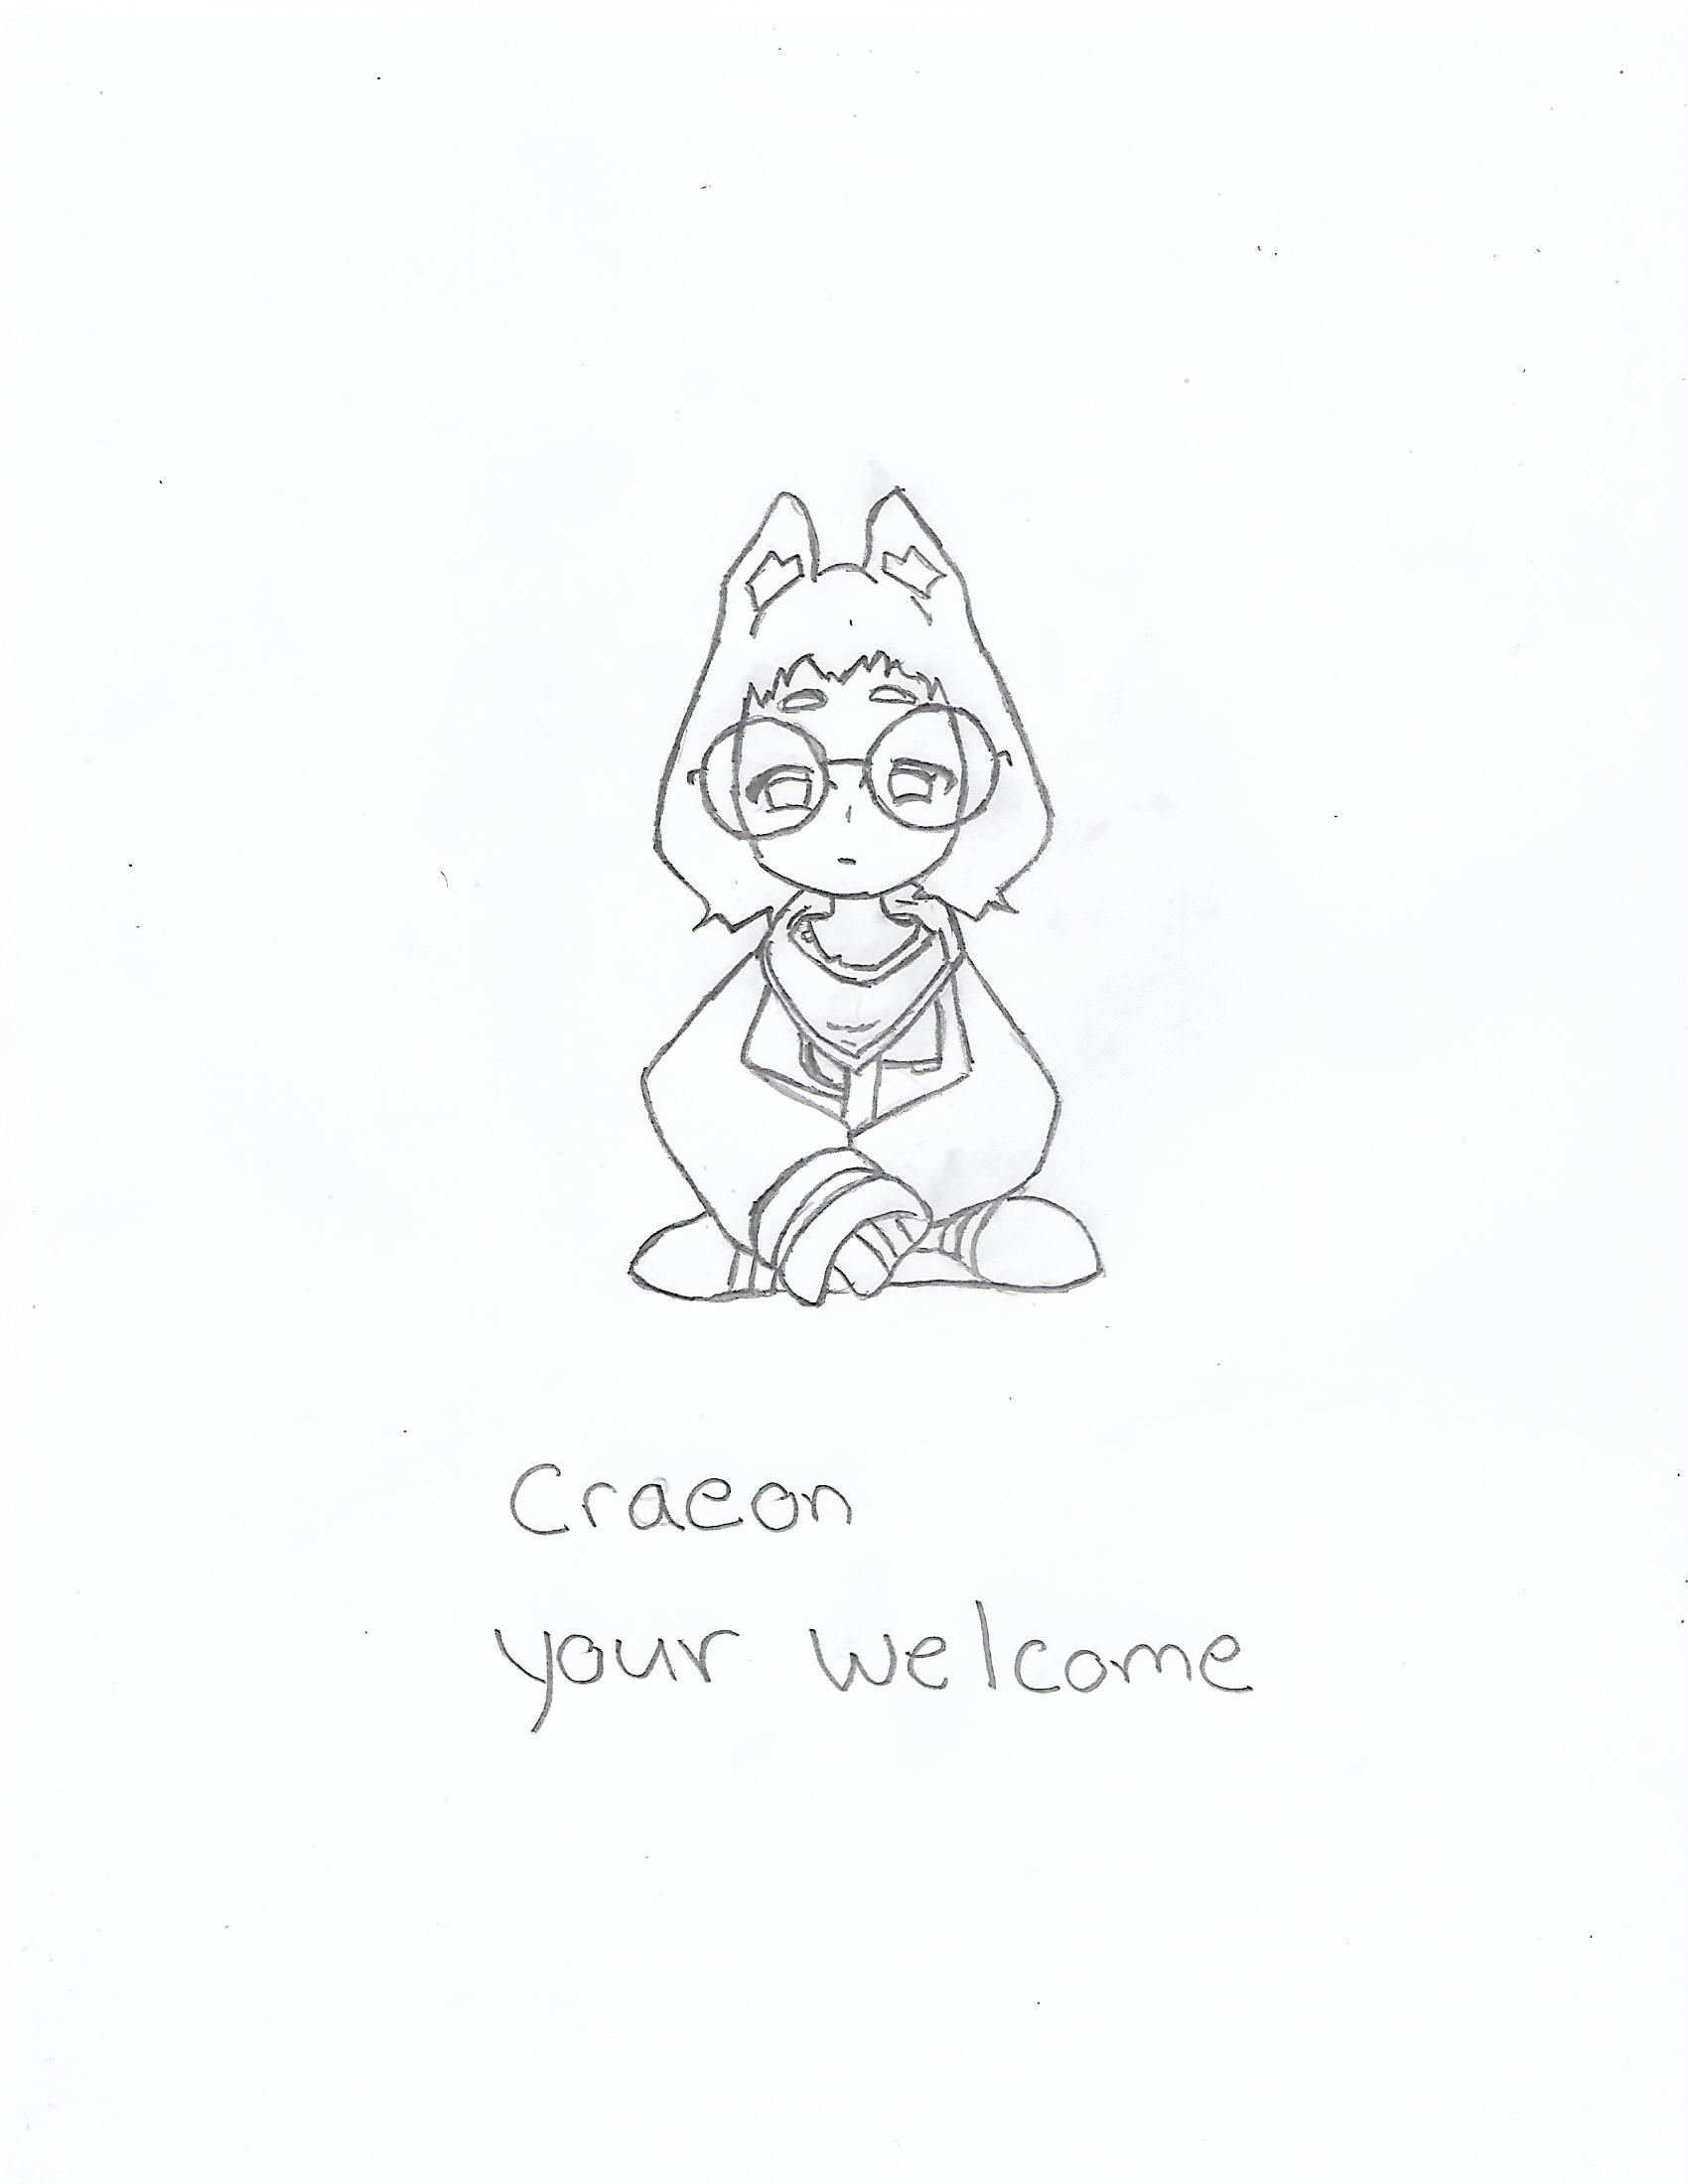 Craeon
your welcome